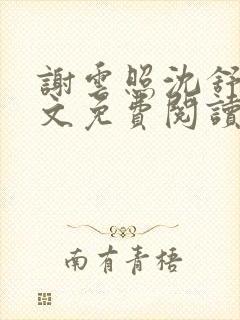 謝雲照沈舒
文免費閱讀
南有青梧